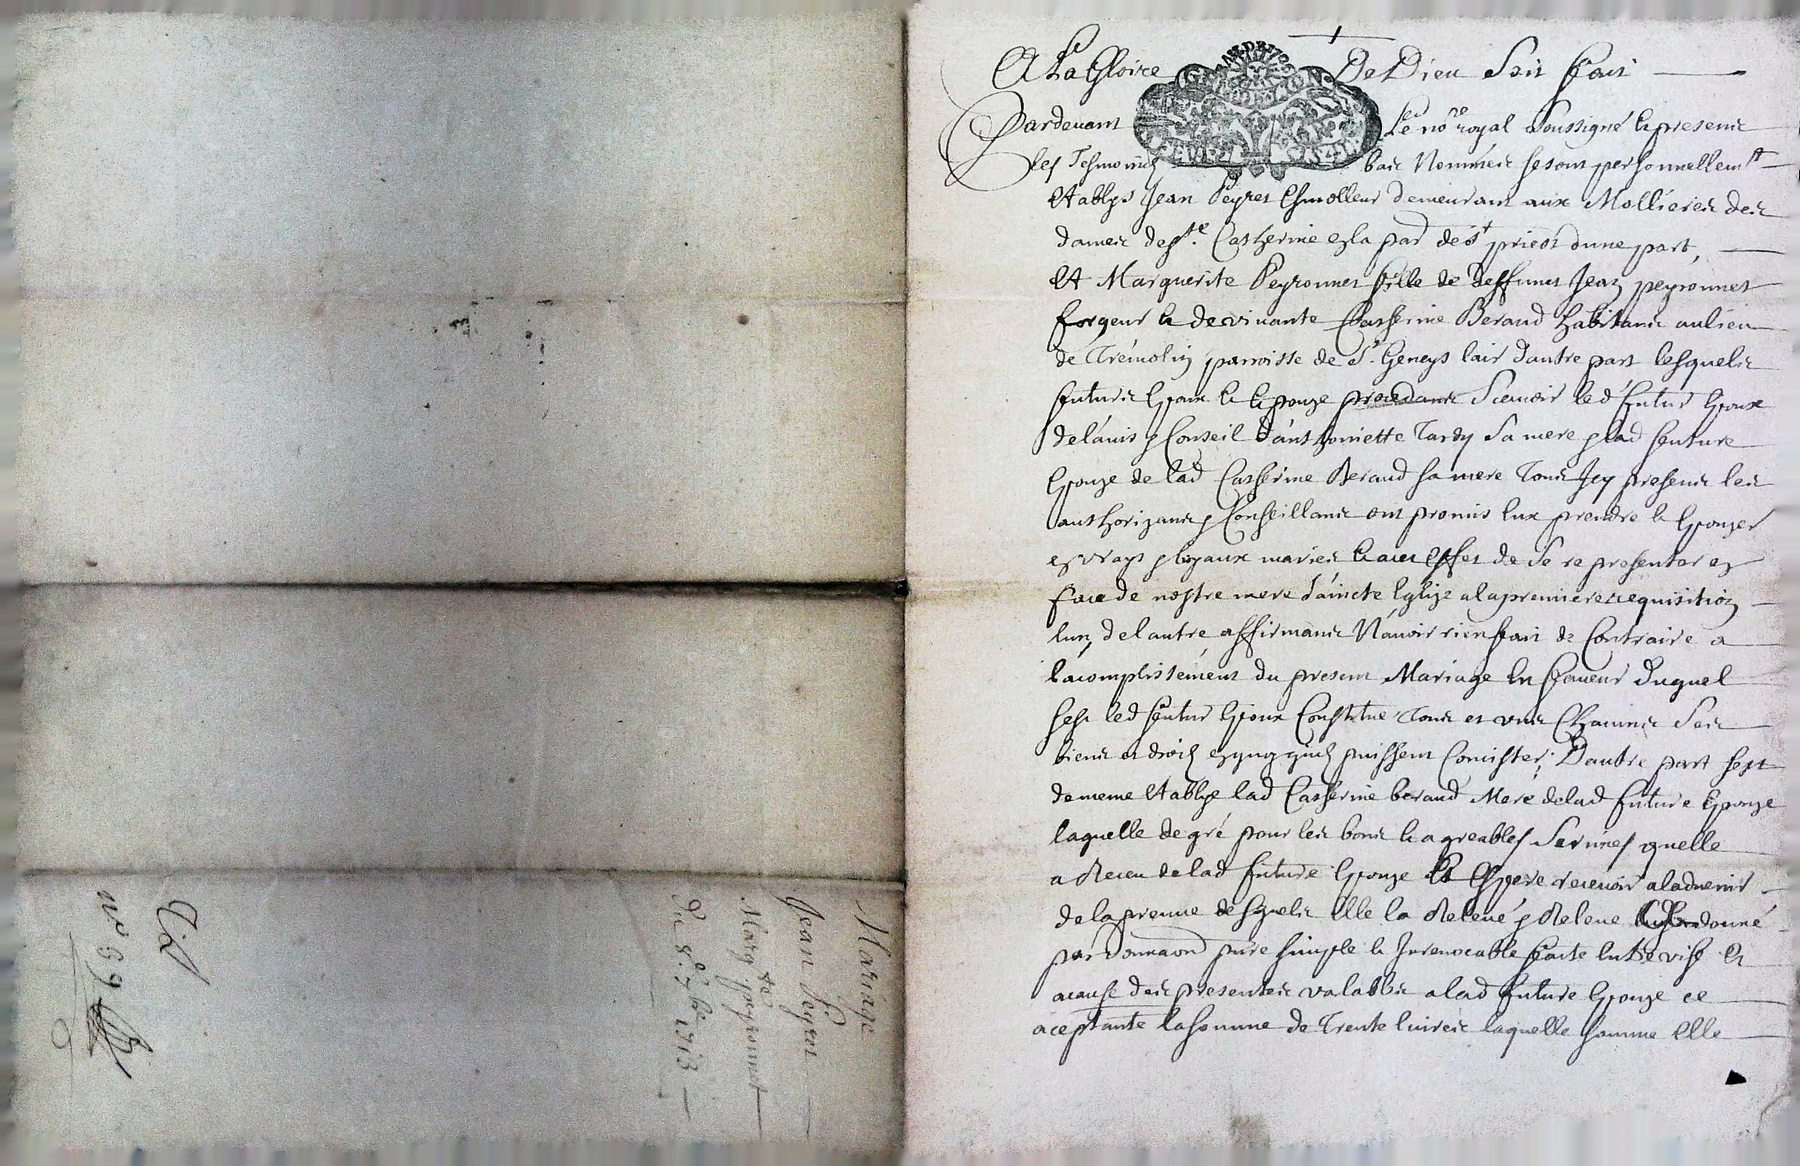 Mariage
Jean Peyret
Marg.te peyronnet
Du 8.e 7.bre 1713
n.o 69
A La Gloire De Dieu Soit fait
Pardevant Le no.re royal Soussigné & presents
les Tesmoings bas Nommés se sont personnellem.t
Etablys Jean Peyret Esmolleur demeurant aux Mollieres des
dames de s.te Catherine en la par de s.t priest dune part,
Et Marguerite Peyronnet fille de deffunct Jean peyronnet
forgeur & de vivante Catherine Beraud habitants au lieu
de Trémolin parroisse de S.t Geneys lair dautre part lesquels
futurs Epoux & Epouze procedants Scavoir led futur Epoux
de lavis & Conseil danthoinette Tardy Sa mere & lad future
Epouze de lad Catherine Beraud sa mere Tous Icy presents les
authorizants & Conseillants ont promis Eux prendre & Epouzer
en vrays & loyaux mariés & a cet effet de Se representer en
face de nostre mere Saincte Eglize a la premiere requisition
lun, de lautre affirmants Navoir rien fait de Contraire a
lacomplissement du present Mariage En faveur duquel
sest led futur Epoux Constitué Tous et uns Chacuns Ses
biens et droits en quoy quils puissent Concister; Dautre part sest
de meme Etablye lad Catherine beraud Mere de lad future Epouze
laquelle de gré pour les bons & agreables Services quelle
a Receu de lad future Epouze Et Espere recevoir a ladvenir
de la preuve desquels Elle la Relevé & Releve donné
par donnaon pure simple & Irrevocable faicte Entre vifs Et
a cause des presentes valable a lad future Epouze ce
aceptante la somme de Trente livres laquelle somme Elle